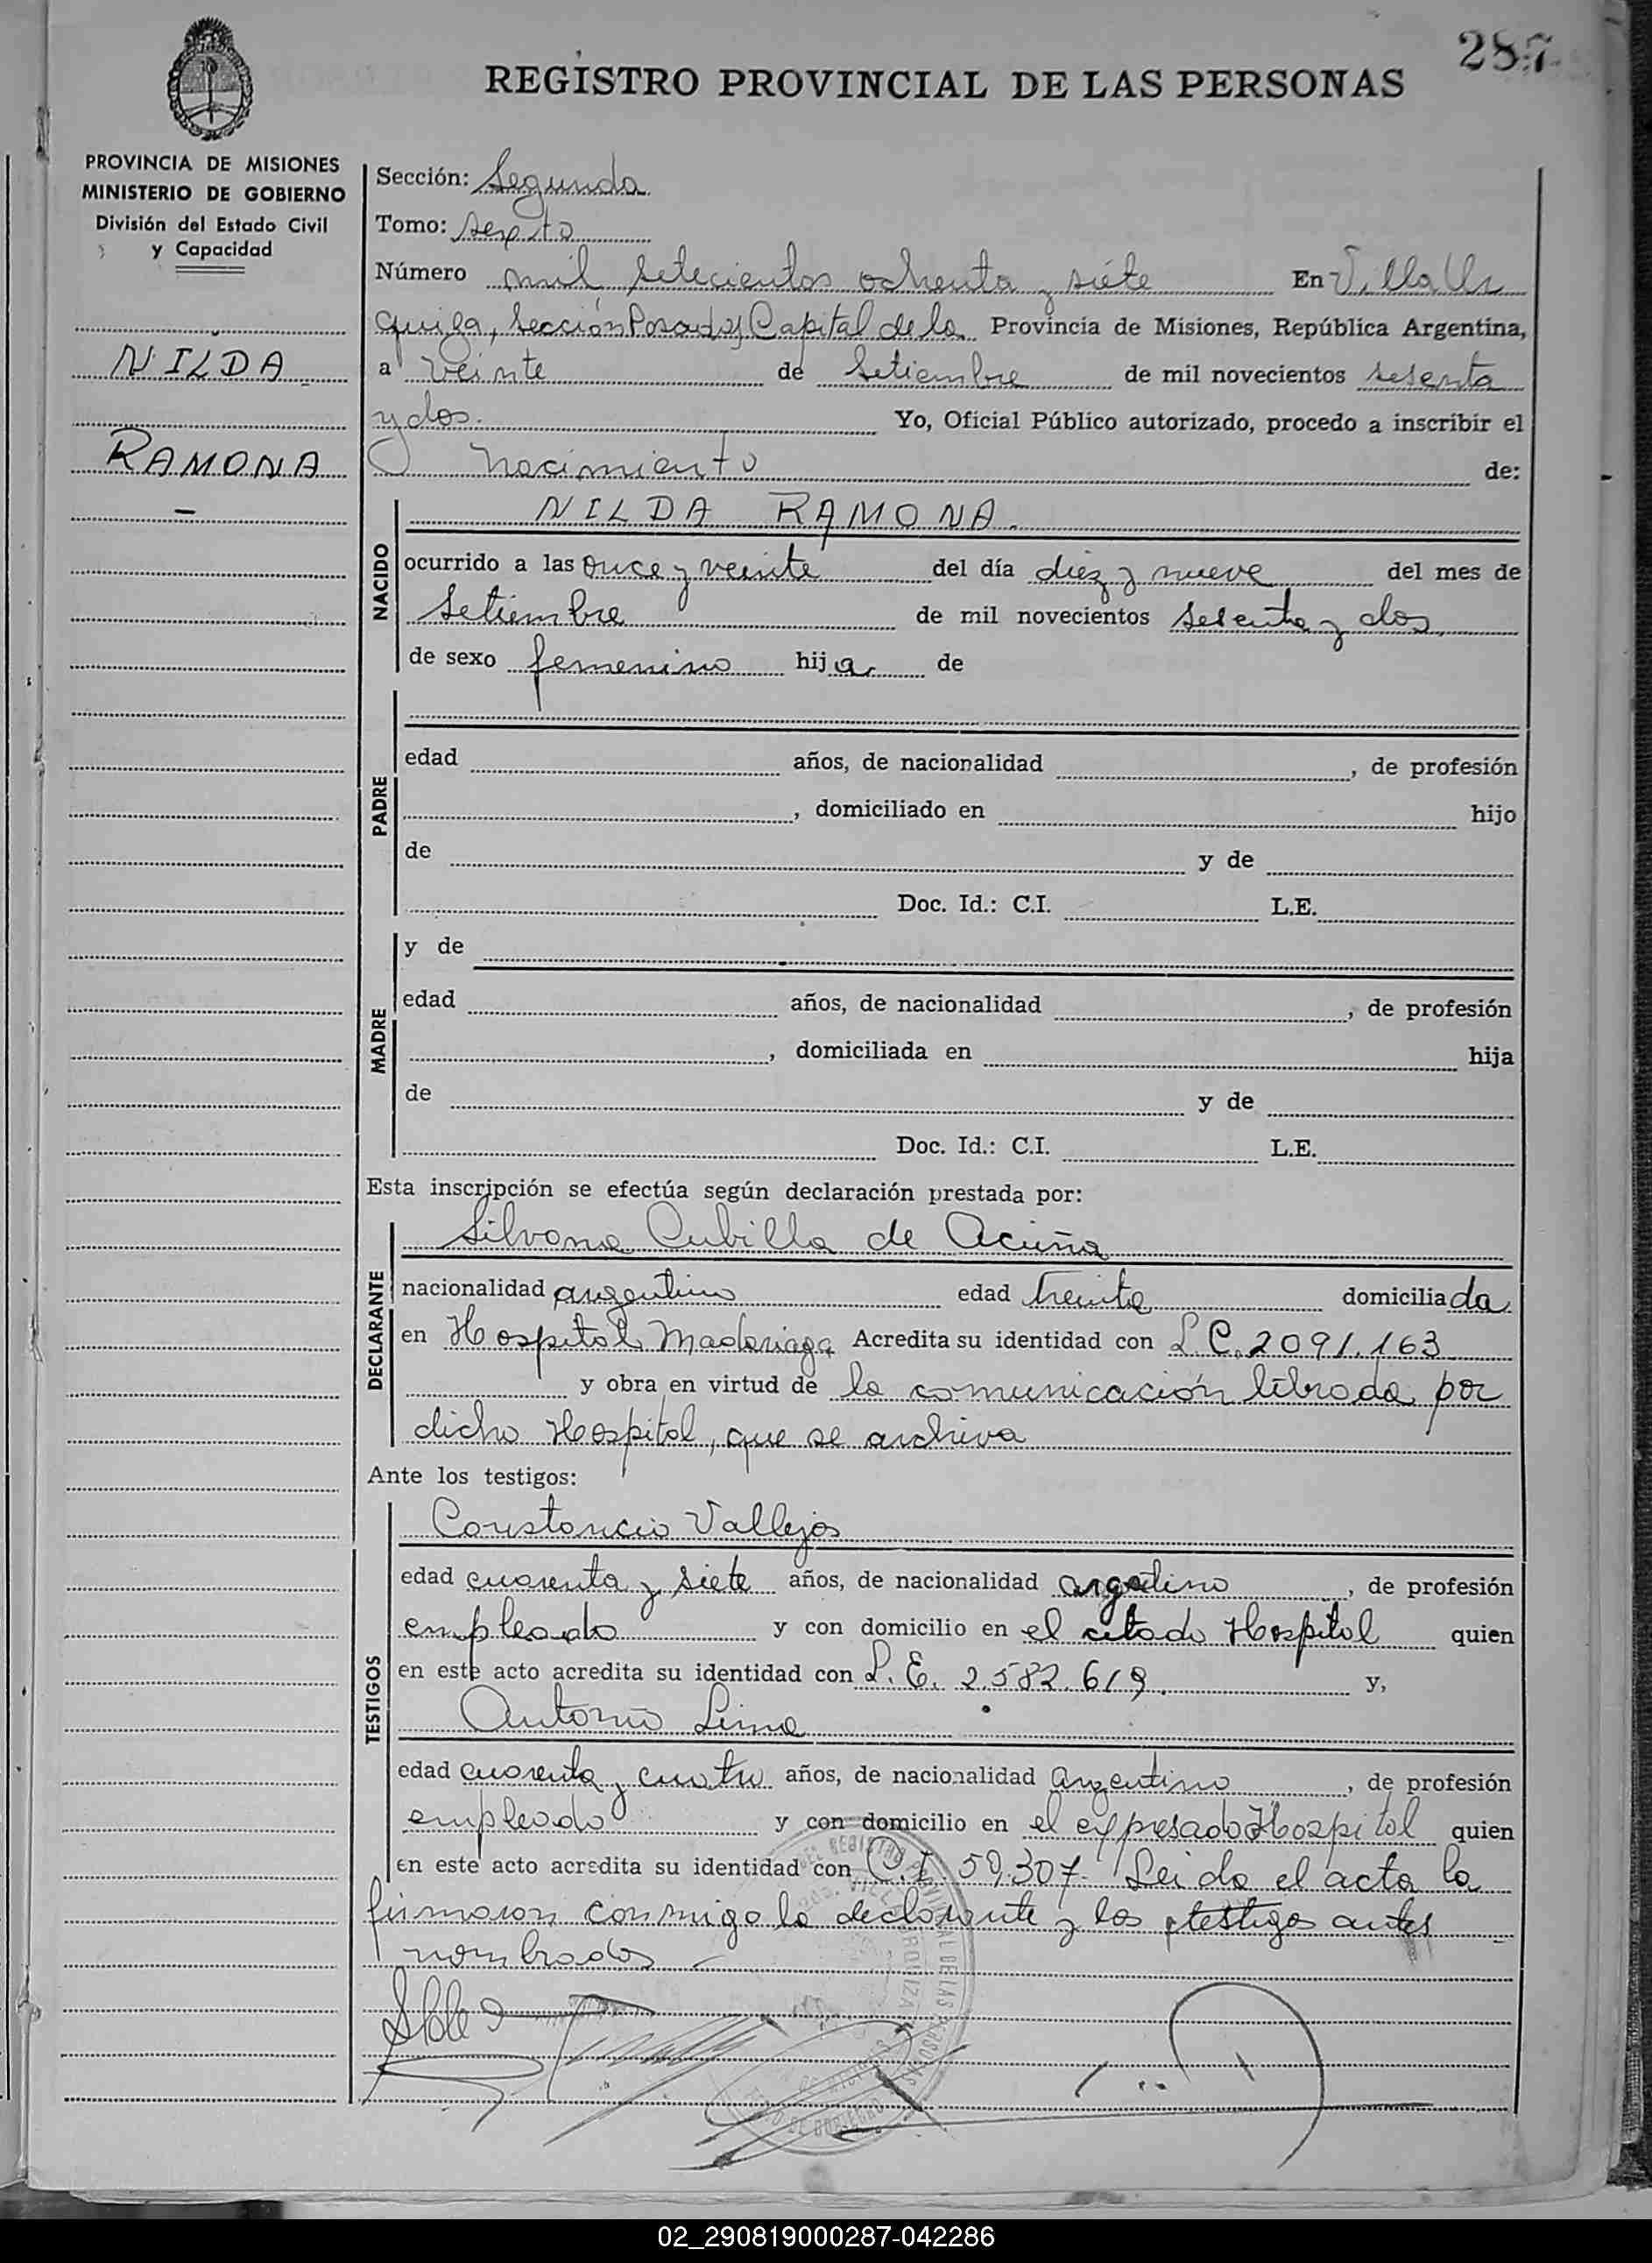 287
REGISTRO PROVINCIAL DE LAS PERSONAS
PROVINCIA DE MISIONES
MINISTERIO DE GOBIERNO
División del Estado Civil
y Capacidad
NILDA
RAMONA
Sección: Segunda
Tomo: sexto
Número mil setecientos ochenta y siete En Villa Ur
quiza, Sección Posadas Capital de la Provincia de Misiones, República Argentina,
a veinte de Setiembre de mil novecientos sesenta
y dos. Yo, Oficial Público autorizado, procedo a inscribir el
nacimiento de:
NACIDO
NILDA RAMONA.
ocurrido a las once y veinte del día diez y nueve del mes de
Setiembre de mil novecientos sesenta y dos
de sexo femenino hija de
PADRE
edad años, de nacionalidad , de profesión
, domiciliado en hijo
de y de
Doc. Id.: C.I. L.E.
MADRE
y de
edad años, de nacionalidad , de profesión
, domiciliada en hija
de y de
Doc. Id.: C.I. L.E.
Esta inscripción se efectúa según declaración prestada por:
DECLARANTE
Silvana Cubilla de Acuña
nacionalidad argentino edad treinta domiciliada
en Hospital Madariaga Acredita su identidad con L.C. 2091.163
y obra en virtud de la comunicación librada por
dicho Hospital, que se archiva
Ante los testigos:
TESTIGOS
Constancio Vallejos
edad cuarenta y siete años, de nacionalidad argentino, de profesión
empleado y con domicilio en el citado Hospital quien
en este acto acredita su identidad con L.E. 2.582.619. y,
Antonio Lima
edad cuarenta y cuatro años, de nacionalidad argentino, de profesión
empleado y con domicilio en el expresado Hospital quien
en este acto acredita su identidad con C.I. 59.307. Leida el acta la
firmaron conmigo la declarante y los testigos antes
nombrados
02_290819000287-042286